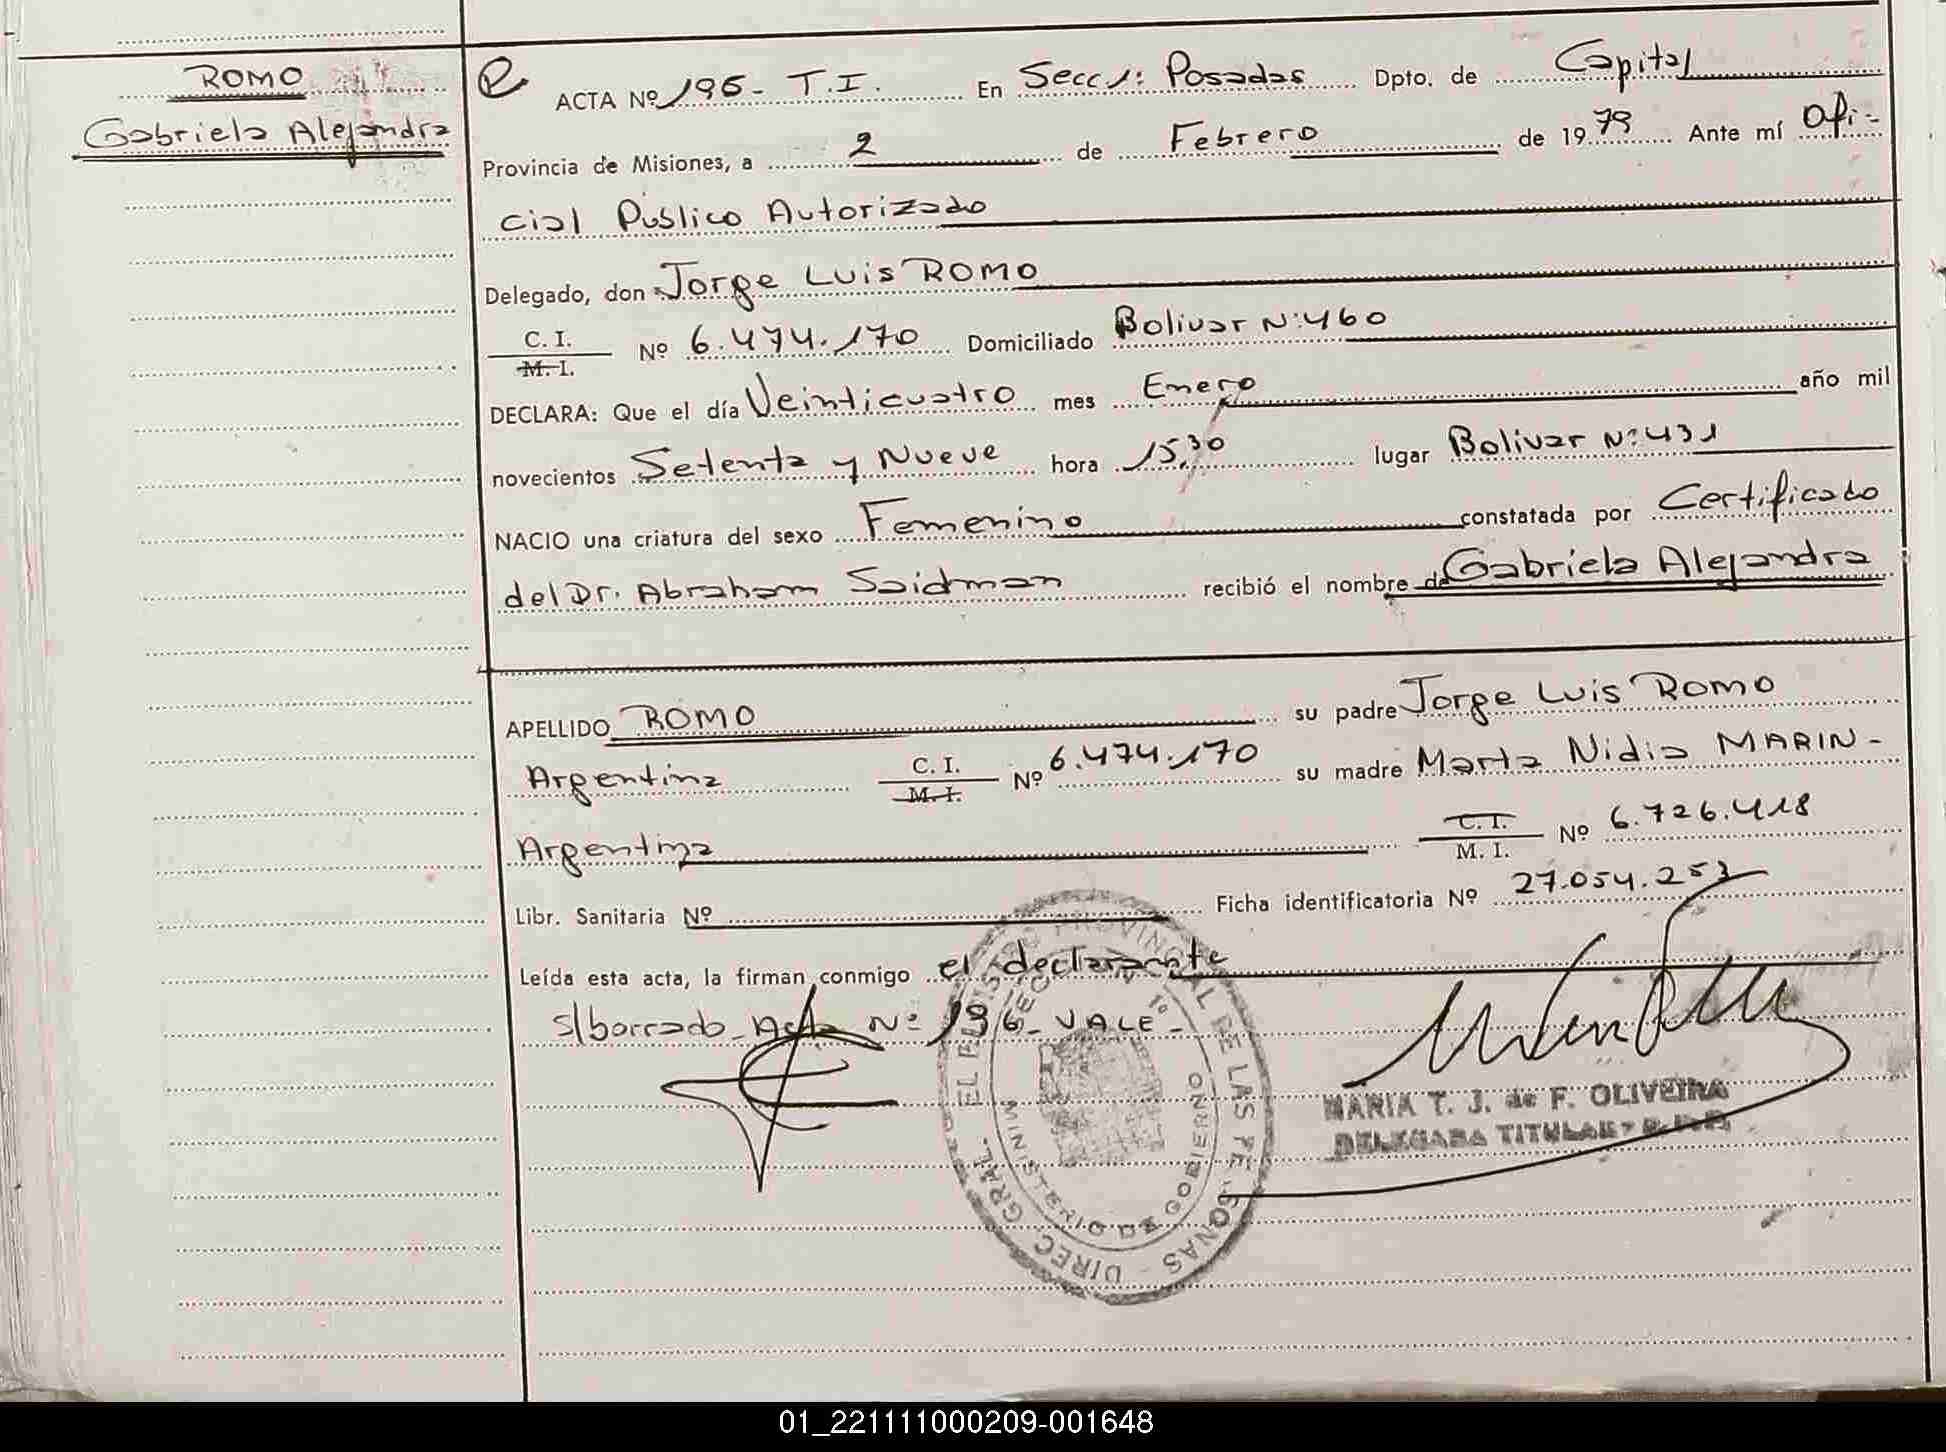 ROMO
Gabriela Alejandra
ACTA Nº 196- T.I. En Secc 1: Posadas Dpto. de Capital
Provincia de Misiones, a 2 de Febrero de 1979 Ante mí Ofi-
cial Público Autorizado
Delegado, don Jorge Luis ROMO
C. I.
M. I.
Nº 6.474.170 Domiciliado Bolivar Nº:460
DECLARA: Que el día Veinticuatro mes Enero año mil
novecientos Setenta y Nueve hora 15,30 lugar Bolivar Nº:431
NACIO una criatura del sexo Femenino constatada por Certificado
del Dr. Abraham Saidman recibió el nombre de Gabriela Alejandra
APELLIDO ROMO su padre Jorge Luis ROMO
Argentina C. I. Nº 6.474.170 su madre Marta Nidia MARIN-
M. I.
Argentina C. I. Nº 6.726.418
M. I.
Libr. Sanitaria Nº Ficha identificatoria Nº 27.054.253
Leída esta acta, la firman conmigo el declarante
s/borrado-Acta Nº 196-VALE-
DIREC. GRAL. DEL REGISTRO PROVINCIAL DE LAS PERSONAS
MINISTERIO DE GOBIERNO
MARIA T. J. de F. OLIVEIRA
DELEGADA TITULAR
01_221111000209-001648